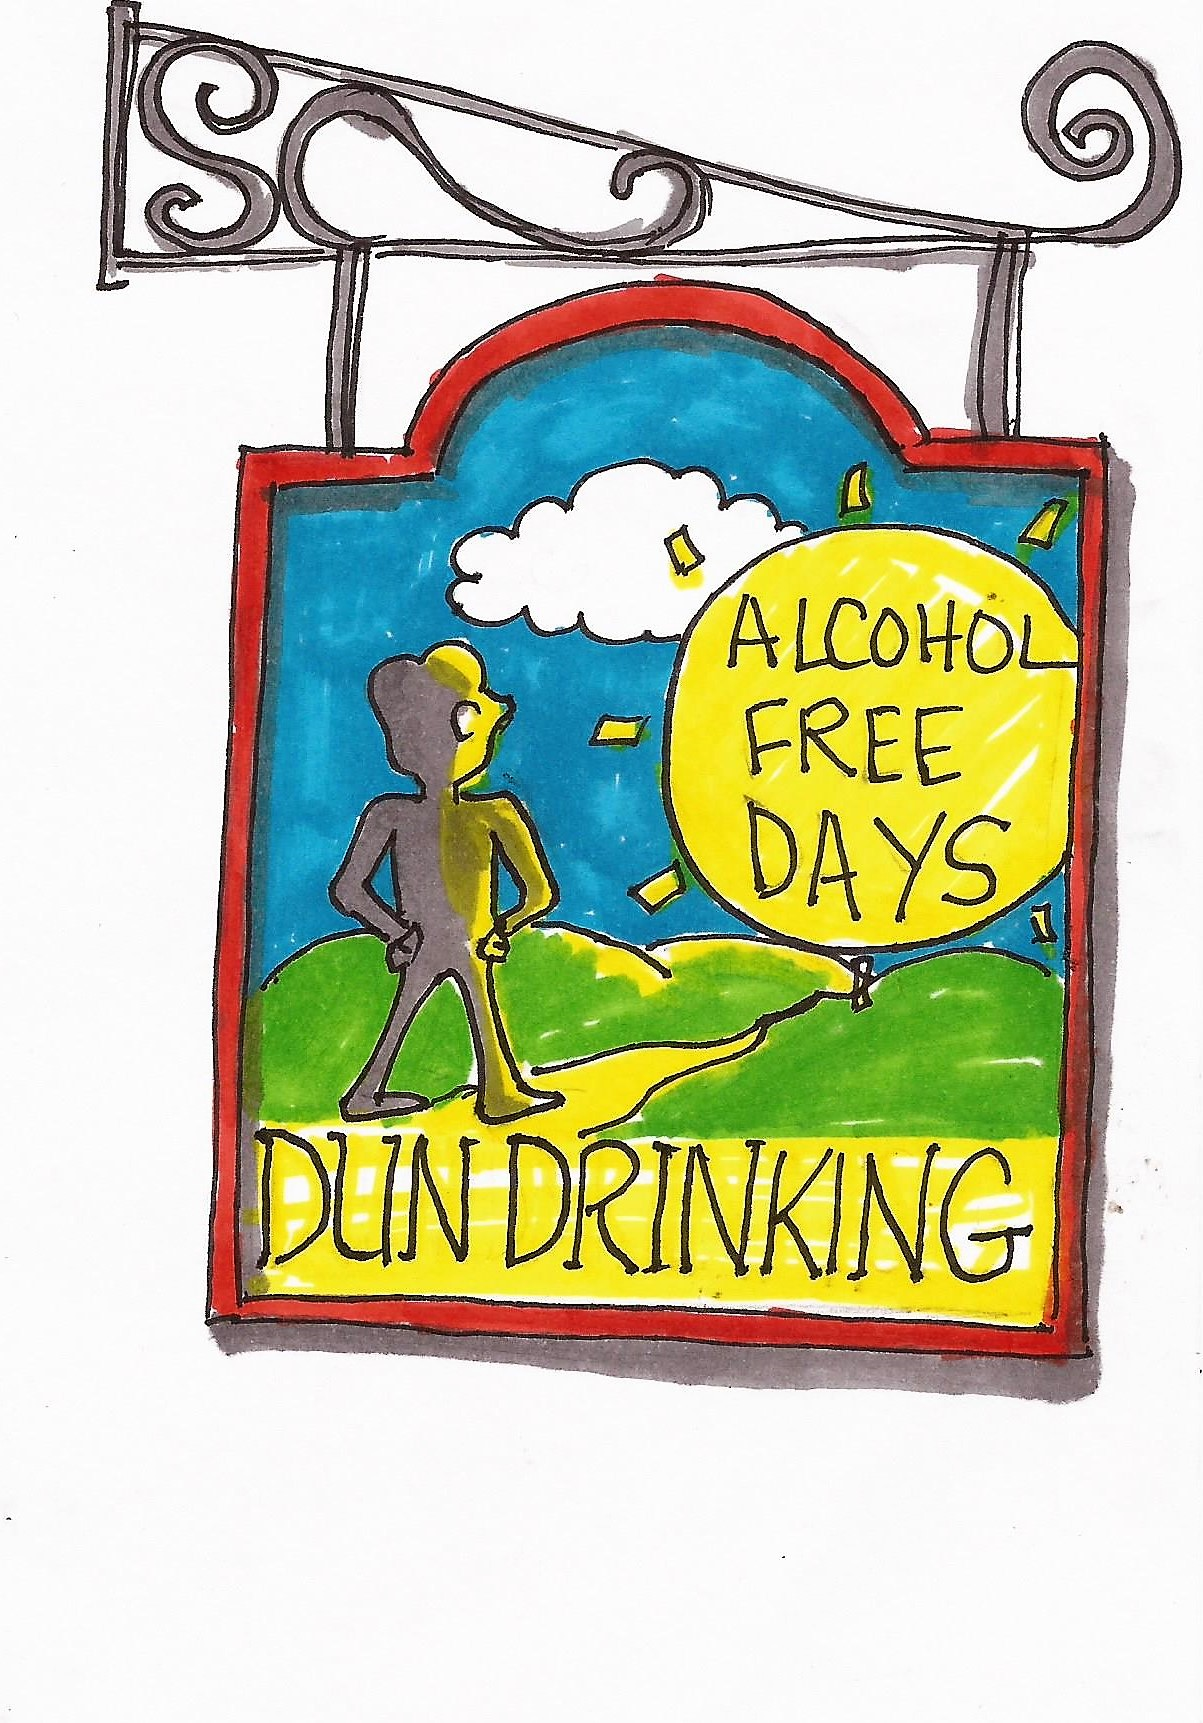 ALCOHOL
FREE
DAYS
DUN DRINKING